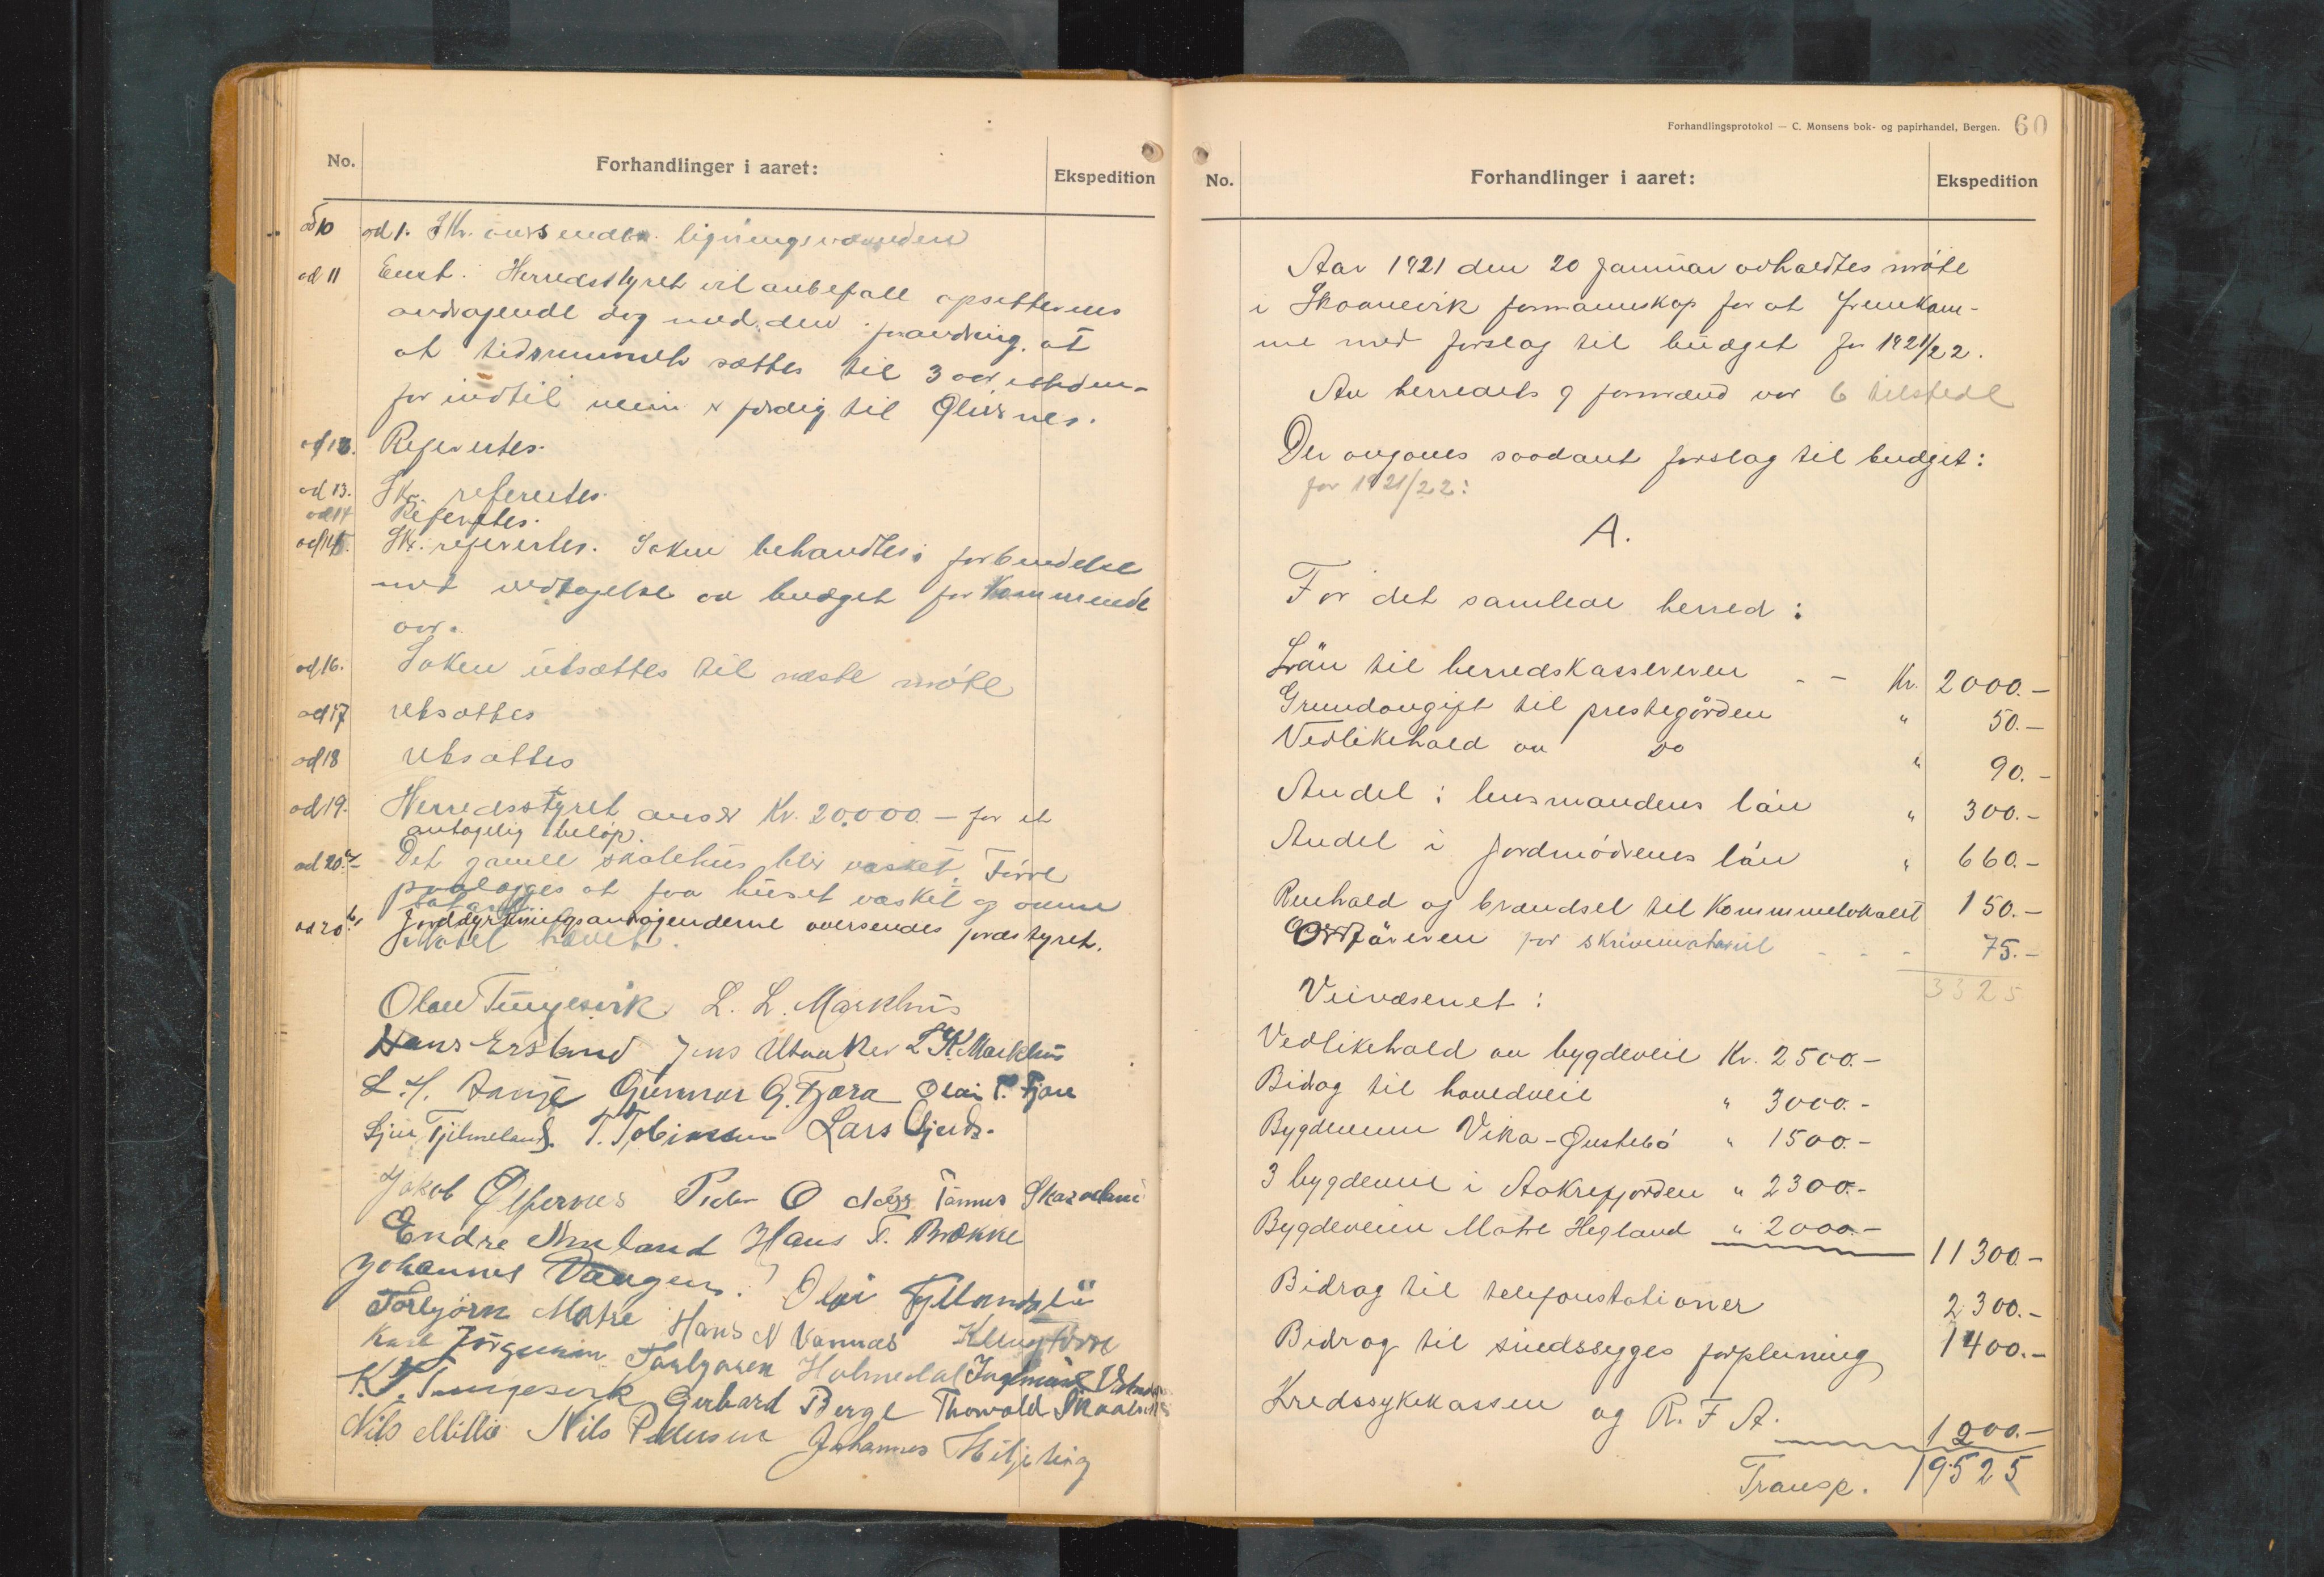 No.
Forhandlinger i aaret:
Ekspedition
ad 10 ad 1. Skr. oversendes ligningsvæsenden
ad 11 Enst. Herredsstyret vil anbefale opsitternes
andragende dog med den forandring at
at tidsrummet sættes til 3 aar istedenfor
indtil veien er færdig til Ølvernes.
ad 12. Refereertes.
ad 13. Skr. referertes.
ad 14 Referertes.
ad 15. Skr. referertes. Saken behandles i forbindelse
med vedtagelse av budget for kommende
aar.
ad 16. Saken utsættes til næste møte
ad 17 utsattes
ad 18 utsattes
ad 19. Herredsstyret anser Kr. 20.000.- for et
antagelig beløp.
ad 20. a/ Det gamle skolehus blir vasket. Førre
paalægges at faa huset vasket og
ad 20 b/ Jorddyrkningsandragenderne oversendes jordstyret.
Møtet hævet.
Olav Tungesvik L. L. Markhus
Hans Ersland Jens Utaaker L K Markhus
L. H. Gunnar G. Fjæra Olai T. Fjære
Sjur Fjelmeland. T. Tobiassen Lars
Jakob Ølfernes Peder O Næss Tønnes
Endre Nmland Hans T. Brække
Johannes Vaagen. Olai
Torbjörn Matre Hans N Vannes
Karl Jörgensen Torbjörn Holmedal Ingemund
K. T. Tungesvik Gerhard Berge Thorvald
Nils Millie Nils Pedersen Johannes
Forhandlingsprotokol — C. Monsens bok- og papirhandel, Bergen. 60
No.
Forhandlinger i aaret:
Ekspedition
Aar 1921 den 20 Januar avholdtes møte
i Skaanevik formannskap for at fremkomme
med forslag til budget for 1921/22.
Av herredets 9 formænd var 6 tilstede
Der avgaves saadant forslag til budget:
for 1921/22:
A.
For det samlede herred:
Løn til herredskassereren - - Kr. 2000.-
Grundavgift til prestegården " 50.-
Vedlikehold av Do " 90.-
Andel i lensmandens løn " 300.-
Andel i jordmødrenes løn " 660.-
Renhold og brændsel til Kommunelokalet 150.-
Ordføreren for skrivemateriel - - - 75.-
3325
Veivæsenet:
Vedlikehold av bygdeveie Kr. 2500.-
Bidrag til hovedveie " 3000.-
Bygdeveien Vika-Øustebø " 1500.-
3 bygdeveie i Aakrefjorden " 2300.-
Bygdeveien Matre Hegland " 2000.-
11300.-
Bidrag til telefonstationer 2300.-
Bidrag til sindssygges forpleining 1400.-
Kredssykekassen og R. F A. 1200.-
Transp. 19525